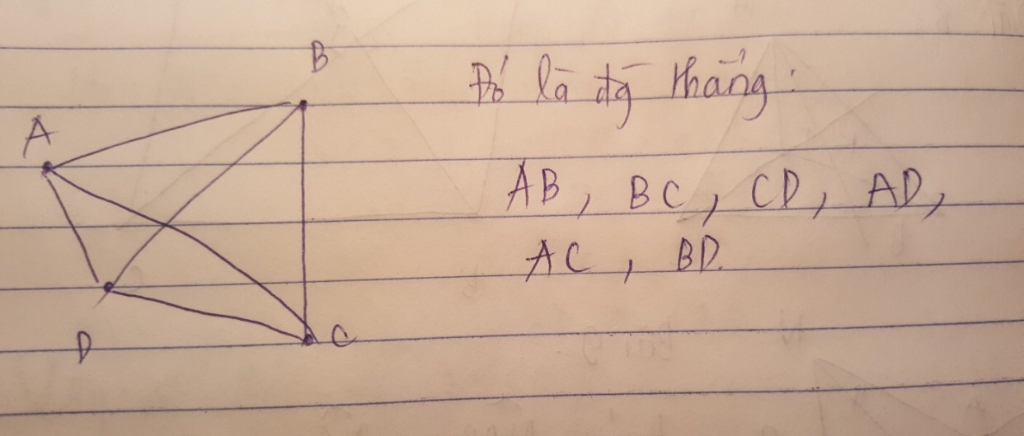 B
A
Đó là đg thẳng:
AB, BC, CD, AD,
AC, BD.
D
C